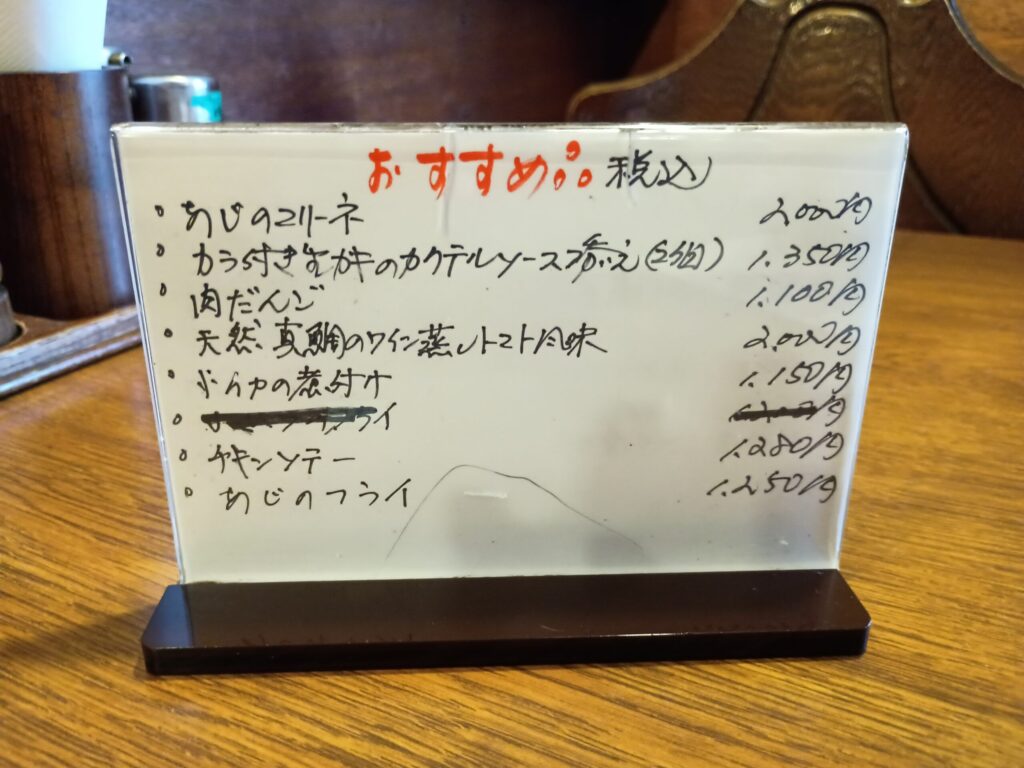 おすすめ品 税込
。あじのマリーネ 2.000円
。カラ付き生ガキのカクテルソース添え(2個) 1.350円
。肉だんご 1.100円
。天然真鯛のワイン蒸しトマト風味 2.000円
。の煮付け 1.150円
。フライ 円
。チキンソテー 1.280円
。あじのフライ 1.250円